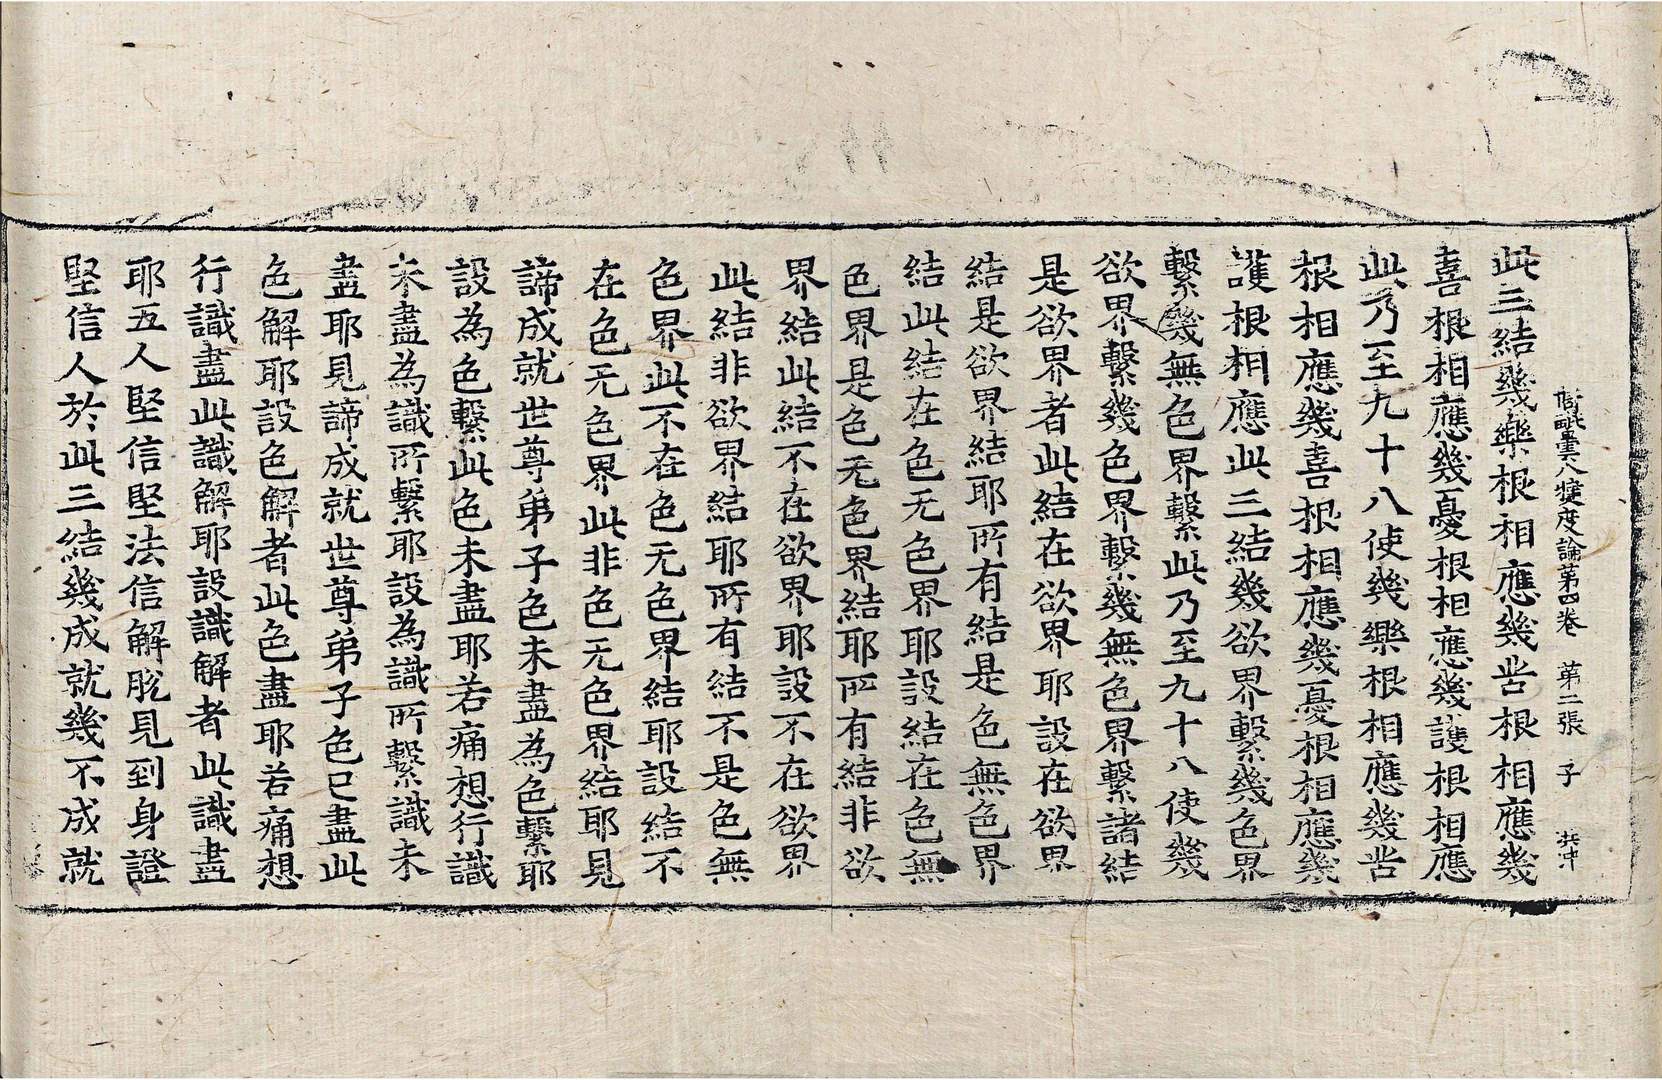 阿毗曇八犍度論第四卷 第二張 子
此三結幾樂根相應幾苦根相應幾
喜根相應幾憂根相應幾護根相應
此乃至九十八使幾樂根相應幾苦
根相應幾喜根相應幾憂根相應幾
護根相應此三結幾欲界繫幾色界
繫幾無色界繫此乃至九十八使幾
欲界繫幾色界繫幾無色界繫諸結
是欲界者此結在欲界耶設在欲界
結是欲界結耶所有結是色無色界
結此結在色无色界耶設結在色無
色界是色无色界結耶所有結非欲
界結此結不在欲界耶設不在欲界
此結非欲界結耶所有結不是色無
色界此不在色无色界結耶設結不
在色无色界此非色无色界結耶見
諦成就世尊弟子色未盡為色繫耶
設為色繫此色未盡耶若痛想行識
未盡為識所繫耶設為識所繫識未
盡耶見諦成就世尊弟子色已盡此
色解耶設色解者此色盡耶若痛想
行識盡此識解耶設識解者此識盡
耶五人堅信堅法信解脫見到身證
堅信人於此三結幾成就幾不成就